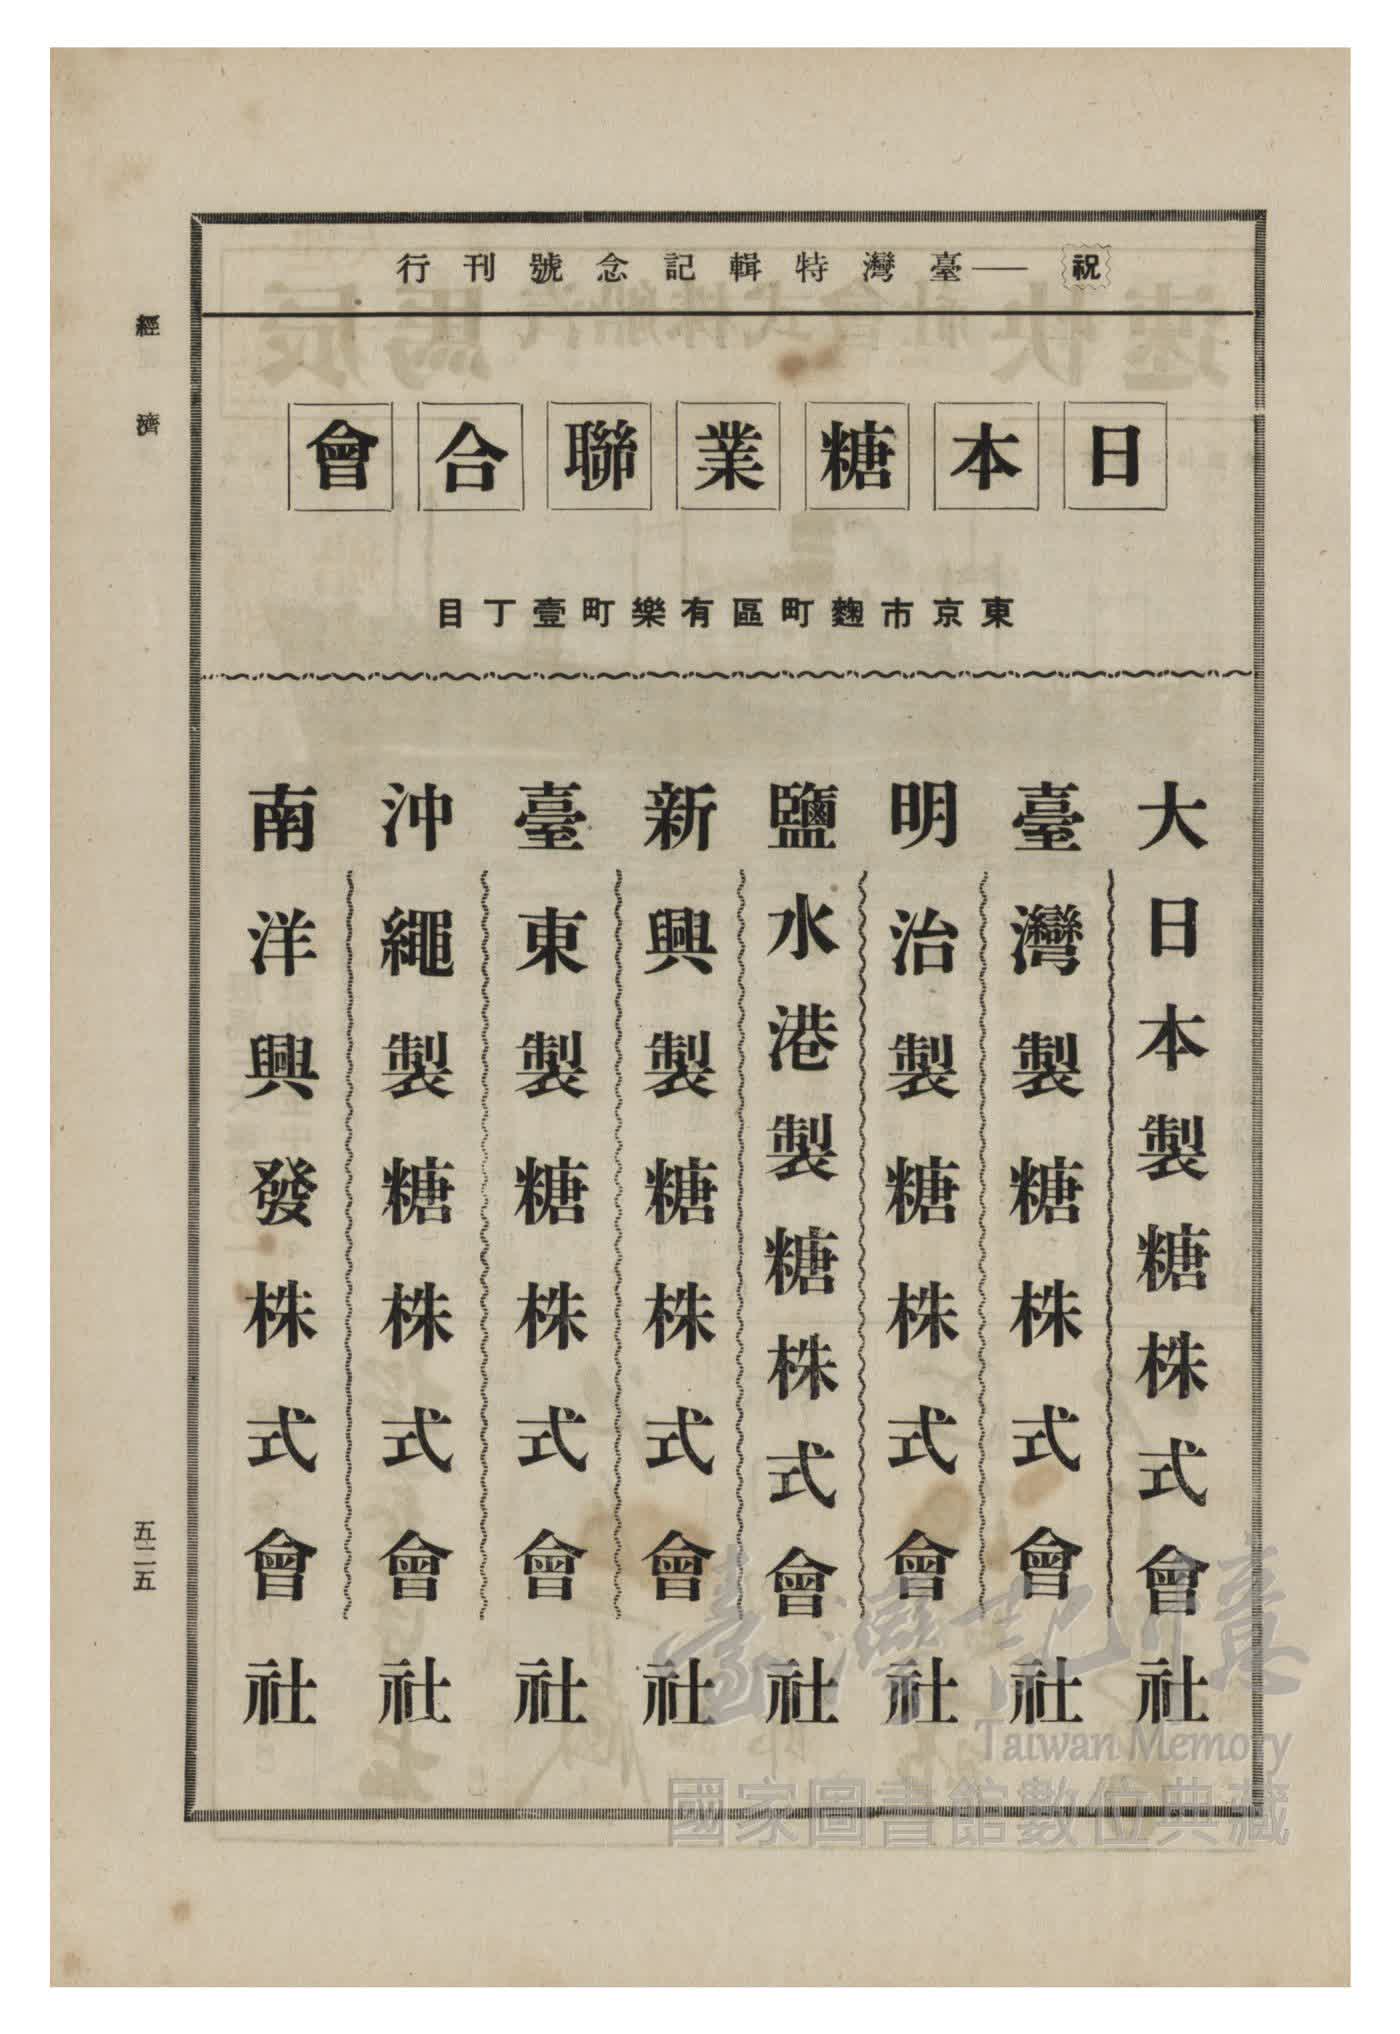 祝——臺灣特輯記念號刊行
日本糖業聯合會
東京市麴町區有樂町壹丁目
大日本製糖株式會社
臺灣製糖株式會社
明治製糖株式會社
鹽水港製糖株式會社
新興製糖株式會社
臺東製糖株式會社
沖繩製糖株式會社
南洋興發株式會社
經濟
五二五
臺灣記憶
Taiwan Memory
國家圖書館數位典藏